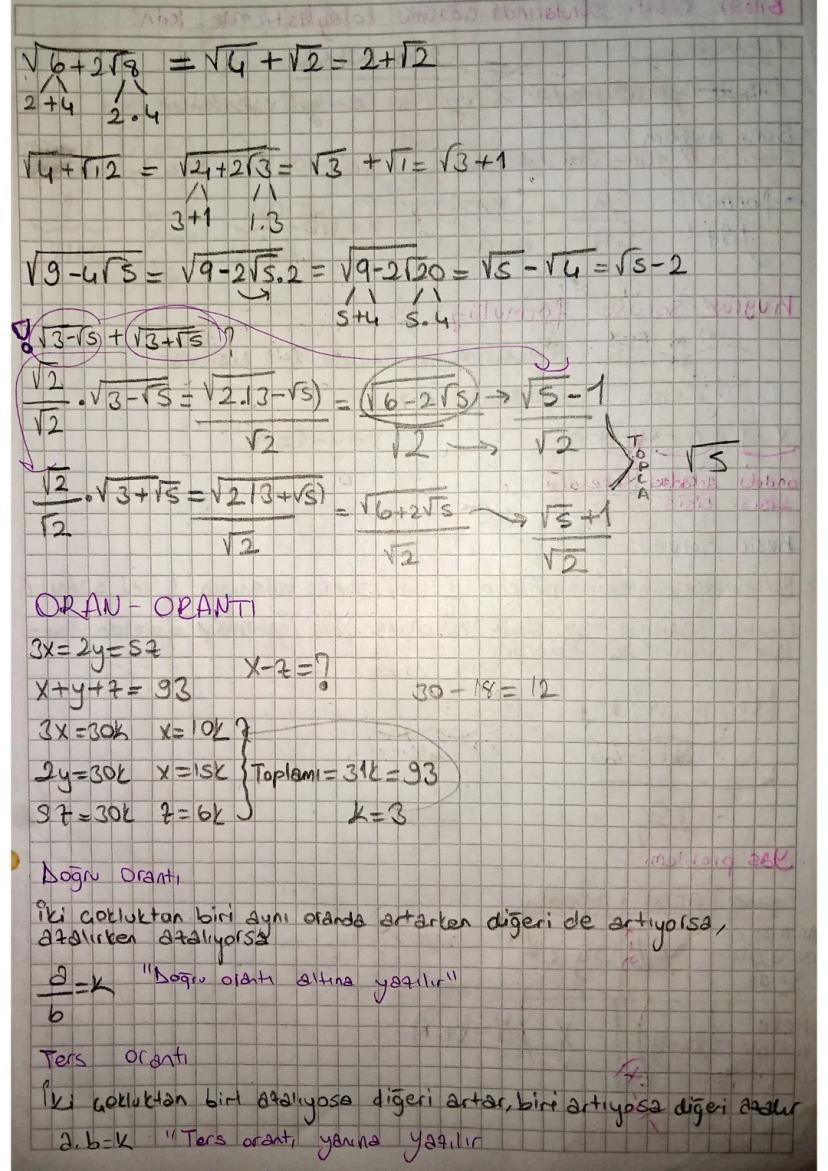 √(6+2√8) = √4 + √2 = 2+√2
2+4 2.4
√(4+√12) = √(4+2√3) = √3 + √1 = √3+1
3+1 1.3
√(9-4√5) = √(9-2√5.2) = √(9-2√20) = √5 - √4 = √5-2
5+4 5.4
! √(3-√5) + √(3+√5) ?
√2/√2 . √(3-√5) = √(2.(3-√5))/√2 = √(6-2√5)/√2 → (√5-1)/√2
TOPLA √5
√2/√2 . √(3+√5) = √(2(3+√5))/√2 = √(6+2√5)/√2 → (√5+1)/√2
ORAN - ORANTI
3x=2y=5z
x-z=?
x+y+z= 93
30-18=12
3x=30k x=10k
2y=30k x=15k } Toplamı=31k=93
5z=30k z=6k k=3
Doğru Orantı
İki çokluktan biri aynı oranda artarken diğeri de artıyorsa,
azalırken azalıyorsa
a/b=k "Doğru orantı altına yazılır"
Ters orantı
İki çokluktan biri azalıyosa diğeri artar, biri artıyosa diğeri azalır
a.b=k "Ters orantı yanına yazılır